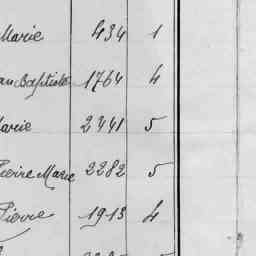 Marie 434 1
an Baptiste 1764 4
Marie 2441 5
Pierre Marie 2282 5
Pierre 1913 4